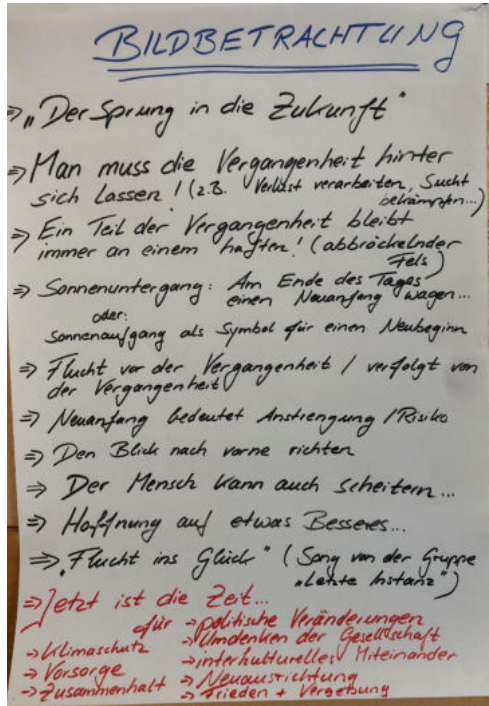 BILDBETRACHTUNG
⇒ „Der Sprung in die Zukunft"
⇒ Man muss die Vergangenheit hinter
sich lassen! (z.B. Verlust verarbeiten, Sucht
bekämpfen...)
⇒ Ein Teil der Vergangenheit bleibt
immer an einem haften! (abbröckelnder
Fels)
⇒ Sonnenuntergang: Am Ende des Tages
einen Neuanfang wagen...
oder:
Sonnenaufgang als Symbol für einen Neubeginn
⇒ Flucht vor der Vergangenheit / verfolgt von
der Vergangenheit
⇒ Neuanfang bedeutet Anstrengung / Risiko
⇒ Den Blick nach vorne richten
⇒ Der Mensch kann auch scheitern...
⇒ Hoffnung auf etwas Besseres...
⇒ „Flucht ins Glück" (Song von der Gruppe
„Letzte Instanz")
⇒ Jetzt ist die Zeit...
für → politische Veränderungen
→ Klimaschutz → Umdenken der Gesellschaft
→ Vorsorge → interkulturelles Miteinander
→ Zusammenhalt → Neuausrichtung
→ Frieden + Vergebung